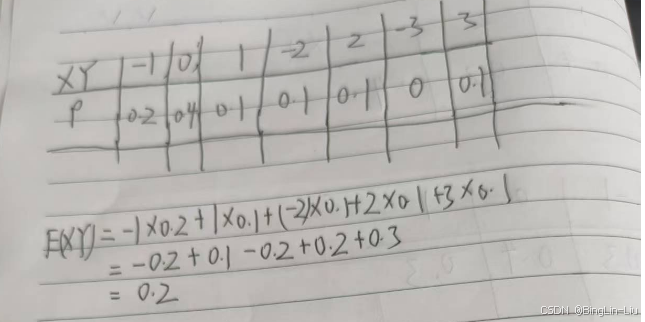 XY -1 0 1 -2 2 -3 3
P 0.2 0.4 0.1 0.1 0.1 0 0.1
E(XY) = -1×0.2+1×0.1+(-2)×0.1+2×0.1+3×0.1
= -0.2+0.1-0.2+0.2+0.3
= 0.2
CSDN @BingLin-Liu